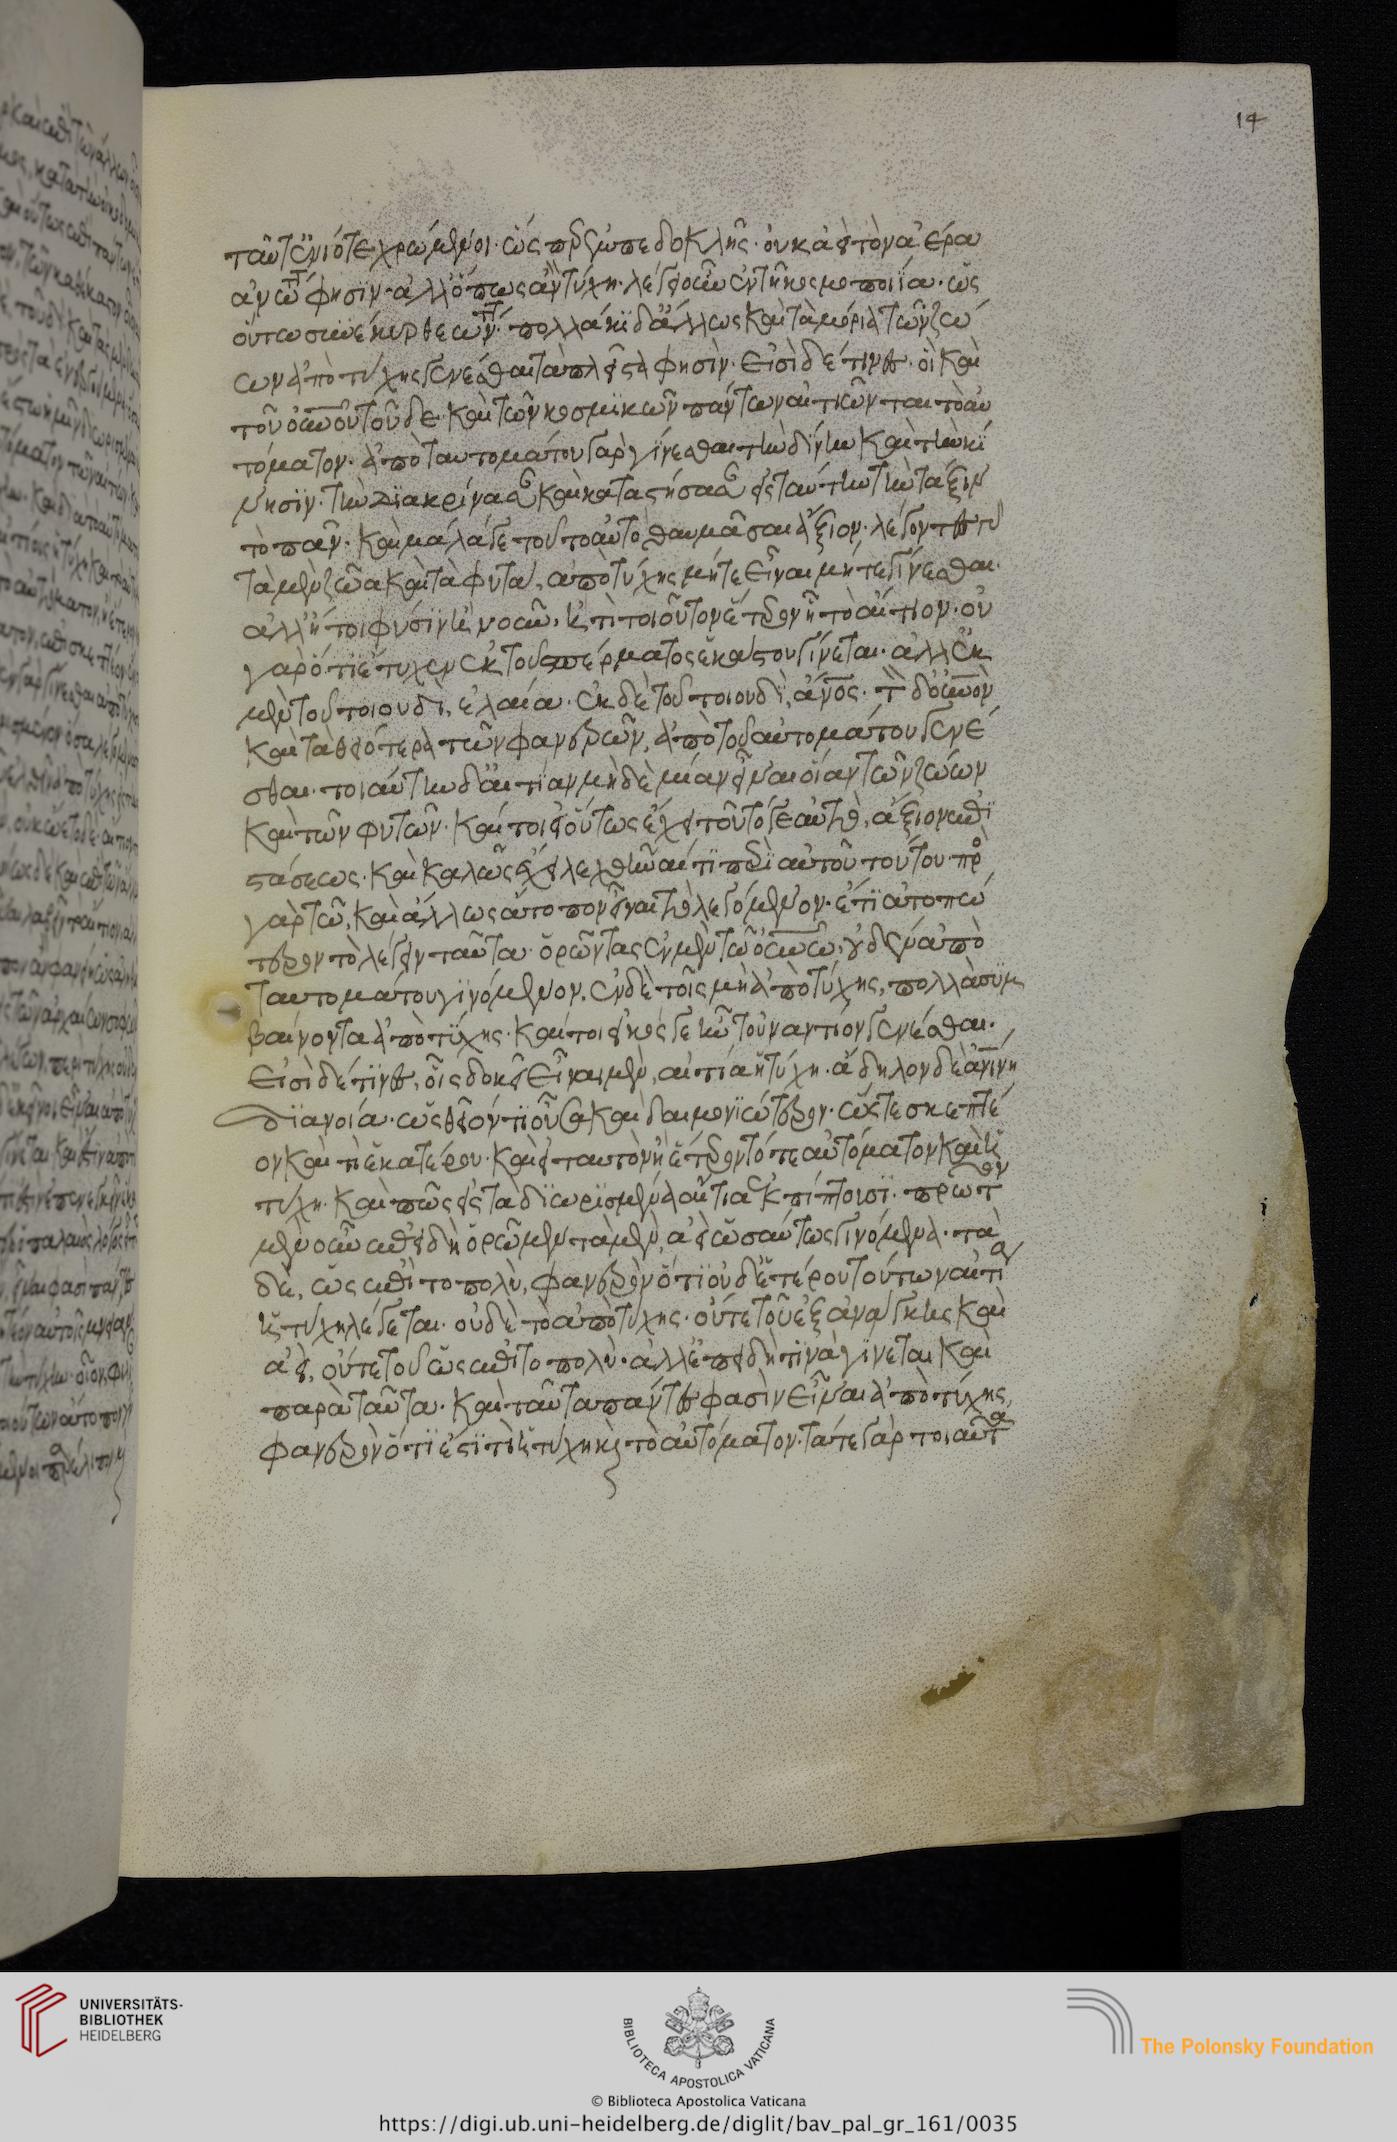 ταύτη ἐνίοτε χρώμενοι· ὥσπερ ἐμπεδοκλῆς· οὐκ ἀεὶ τὸν ἀέρα
ἀνωτ φησϊν· ἀλλ' ὅπως ἂν τύχη· λέγει οὖν ἐν τῆ κοσμοποιΐα· ὡς
οὕτω συνέκυρσε θέων τότε· πολλάκϊ δ' ἄλλως καὶ τὰ μόρια τῶν ζώ
ων ἀπὸ τύχης γενέσθαι τὰ πλεῖστα φησίν· εἰσὶ δέ τινες· οἳ καὶ
τοῦ οὐνοῦ τοῦδε· καὶ τῶν κοσμϊκῶν πάντων αἰτιῶνται τὸ αὐ
τόματον· ἀπὸ ταυτομάτου γὰρ γίνεσθαι τὴν δίνην καὶ τὴν κί
νησϊν· τὴν διακρίνασαν καὶ καταστήσασαν εἰς ταύτην τὴν τάξιν
τὸ πᾶν· καὶ μάλά γε τοῦτο αὐτὸ θαυμάσαι ἄξιον· λέγοντες
τὰ μὲν ζῶα καὶ τὰ φυτὰ, ἀπὸ τύχης μήτε εἶναι μήτε γίνεσθαι·
ἀλλ' ἤτοι φύσϊν ἢ νοῦν, ἤ τι τοιοῦτον ἕτερον εἶ τὸ αἴτιον· οὐ
γὰρ ὅ τι ἔτυχεν ἐκ τοῦ σπέρματος ἑκάστου γίνεται· ἀλλ' ἐκ
μὲν τοῦ τοιουδὶ, ἐλαία· ἐκ δὲ τοῦ τοιουδὶ, ἄνος· τὸν δ' οὐνὸν
καὶ τὰ θειότερα τῶν φανερῶν, ἀπὸ τοῦ αὐτομάτου γενέ
σθαι· τοιαύτην δ' αἰτίαν μηδὲ μίαν εἶναι οἵαν τῶν ζώων
καὶ τῶν φυτῶν· καί τοι εἰ οὕτως ἔχει τοῦτό γε αὐτὸ, ἄξιον ἐπϊ
στάσεως· καὶ καλῶς ἔχει λεχθῆναί τϊ περὶ αὐτοῦ τούτου· πρὸ
γὰρ τῶ, καὶ ἄλλως ἄτοπον εἶναι τὸ λεγόμενον· ἔτϊ ἀτοπώ
τερον τὸ λέγειν ταῦτα· ὁρῶντας ἐν μὲν τῶ οὐνῶ, οὐδὲν ἀπὸ
ταυτομάτου γϊνόμενον, ἐν δὲ τοῖς μὴ ἀπὸ τύχης, πολλὰ συμ
βαίνοντα ἀπὸ τύχης· καί τοι εἰκός γε ἦν τοὐναντίον γενέσθαι·
εἰσὶ δέ τϊνες, οἷς δοκεῖ εἶναι μὲν, αἰτία ἡ τύχη· ἄδηλον δὲ ἀνινη
διανοία· ὡς θεῖόν τϊ οὖσα καὶ δαιμονϊώτερον· ὥστε σκεπτέ
ον καὶ τί ἑκατέρου· καὶ εἰ ταυτὸν ἢ ἕτερον τό τε αὐτόματον καὶ ἡ
τύχη· καὶ πῶς εἰς τὰ δϊωρϊσμένα αἴτια ἐκπίπτουσϊ· πρῶτον
μὲν οὖν ἐπειδὴ ὁρῶμεν τὰ μὲν, ἀεὶ ὡσαύτως γινόμενα· τὰ
δὲ, ὡς ἐπὶ τὸ πολὺ, φανερὸν ὅτϊ οὐδετέρου τούτων αἰτία
ἡ τύχη λέγεται· οὐδὲ τὸ ἀπὸ τύχης· οὔτε τοῦ ἐξ ἀνάγκης καὶ
ἀεὶ, οὔτε τοῦ ὡς ἐπὶ τὸ πολύ· ἀλλ' ἐπειδή τϊνα γίνεται καὶ
παρὰ ταῦτα· καὶ ταῦτα πάντες φασὶν εἶναι ἀπὸ τύχης,
φανερὸν ὅτϊ ἔστϊ τὶ ἡ τύχη καὶ τὸ αὐτόματον· τά τε γὰρ τοιαῦτα
14
UNIVERSITÄTS-
BIBLIOTHEK
HEIDELBERG
BIBLIOTECA APOSTOLICA VATICANA
The Polonsky Foundation
© Biblioteca Apostolica Vaticana
https://digi.ub.uni-heidelberg.de/diglit/bav_pal_gr_161/0035